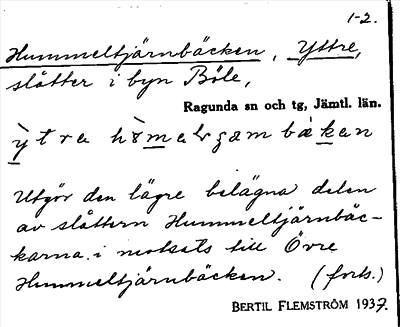 1-2.
Hummeltjärnbäcken, Yttre,
slåtter i byn Böle,
Ragunda sn och tg, Jämtl. län.
Utgör den lägre belägna delen
av slåttern Hummeltjärnbäc-
karna i motsats till Övre
Hummeltjärnbäcken. (forts.)
BERTIL FLEMSTRÖM 1937.